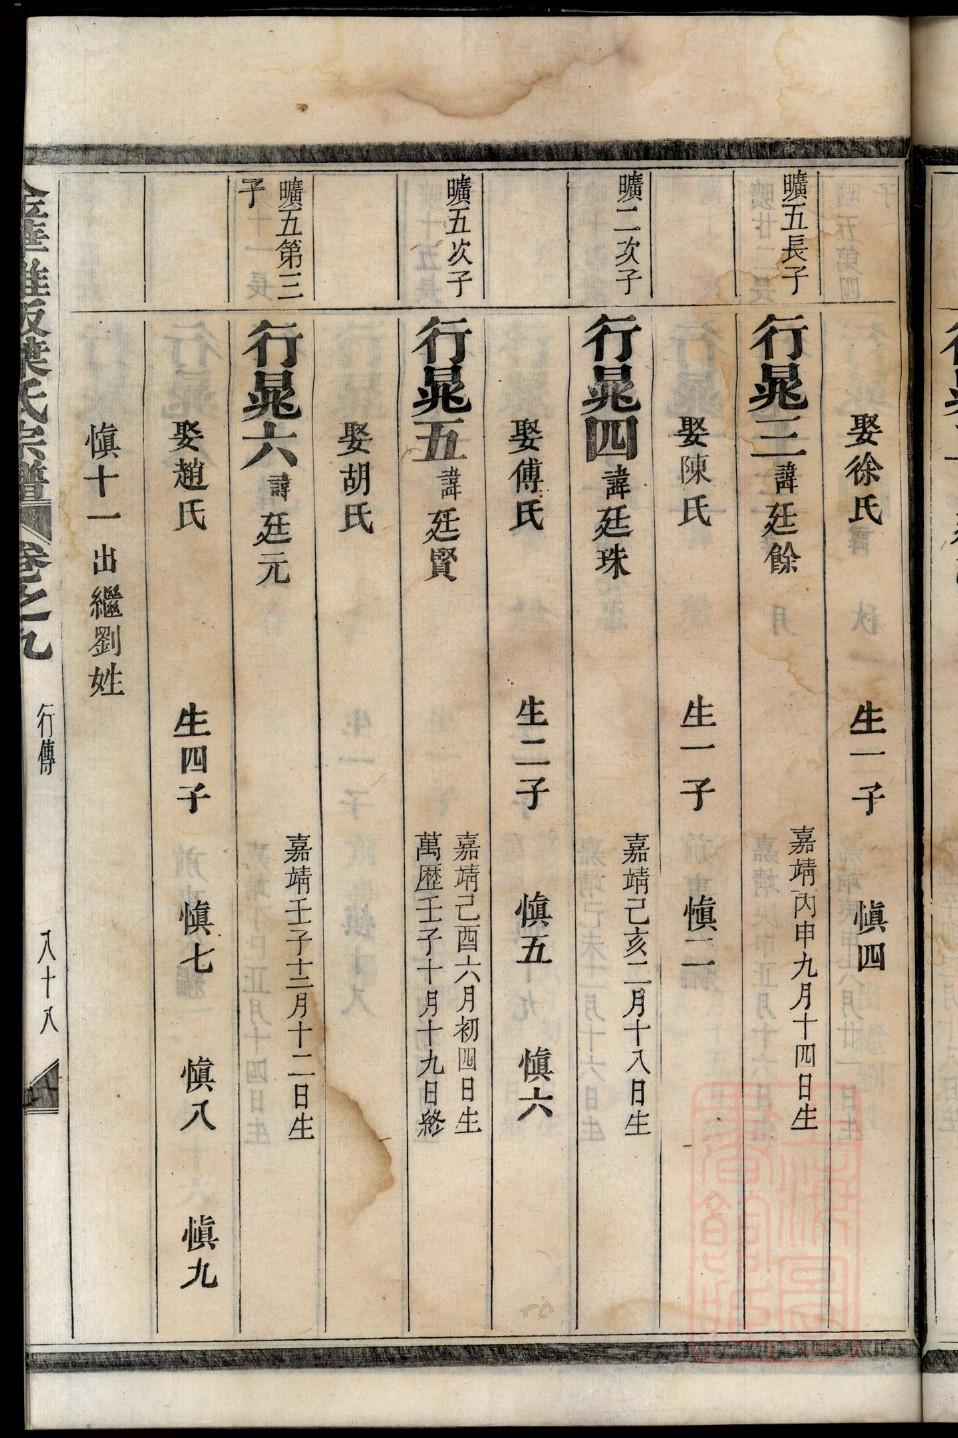 娶徐氏 生一子 慎四
曠五長子
行晁三 諱廷餘 嘉靖丙申九月十四日生
娶陳氏 生一子 慎二
曠二次子
行晁四 諱廷珠 嘉靖己亥二月十八日生
娶傅氏 生二子 慎五 慎六
曠五次子
行晁五 諱廷賢 嘉靖己酉六月初四日生
萬歷壬子十月十九日終
娶胡氏
曠五第三
子
行晁六 諱廷元 嘉靖壬子十二月十二日生
娶趙氏 生四子 慎七 慎八 慎九
慎十一出繼劉姓
葉氏宗譜 卷之九 行傳 八十八